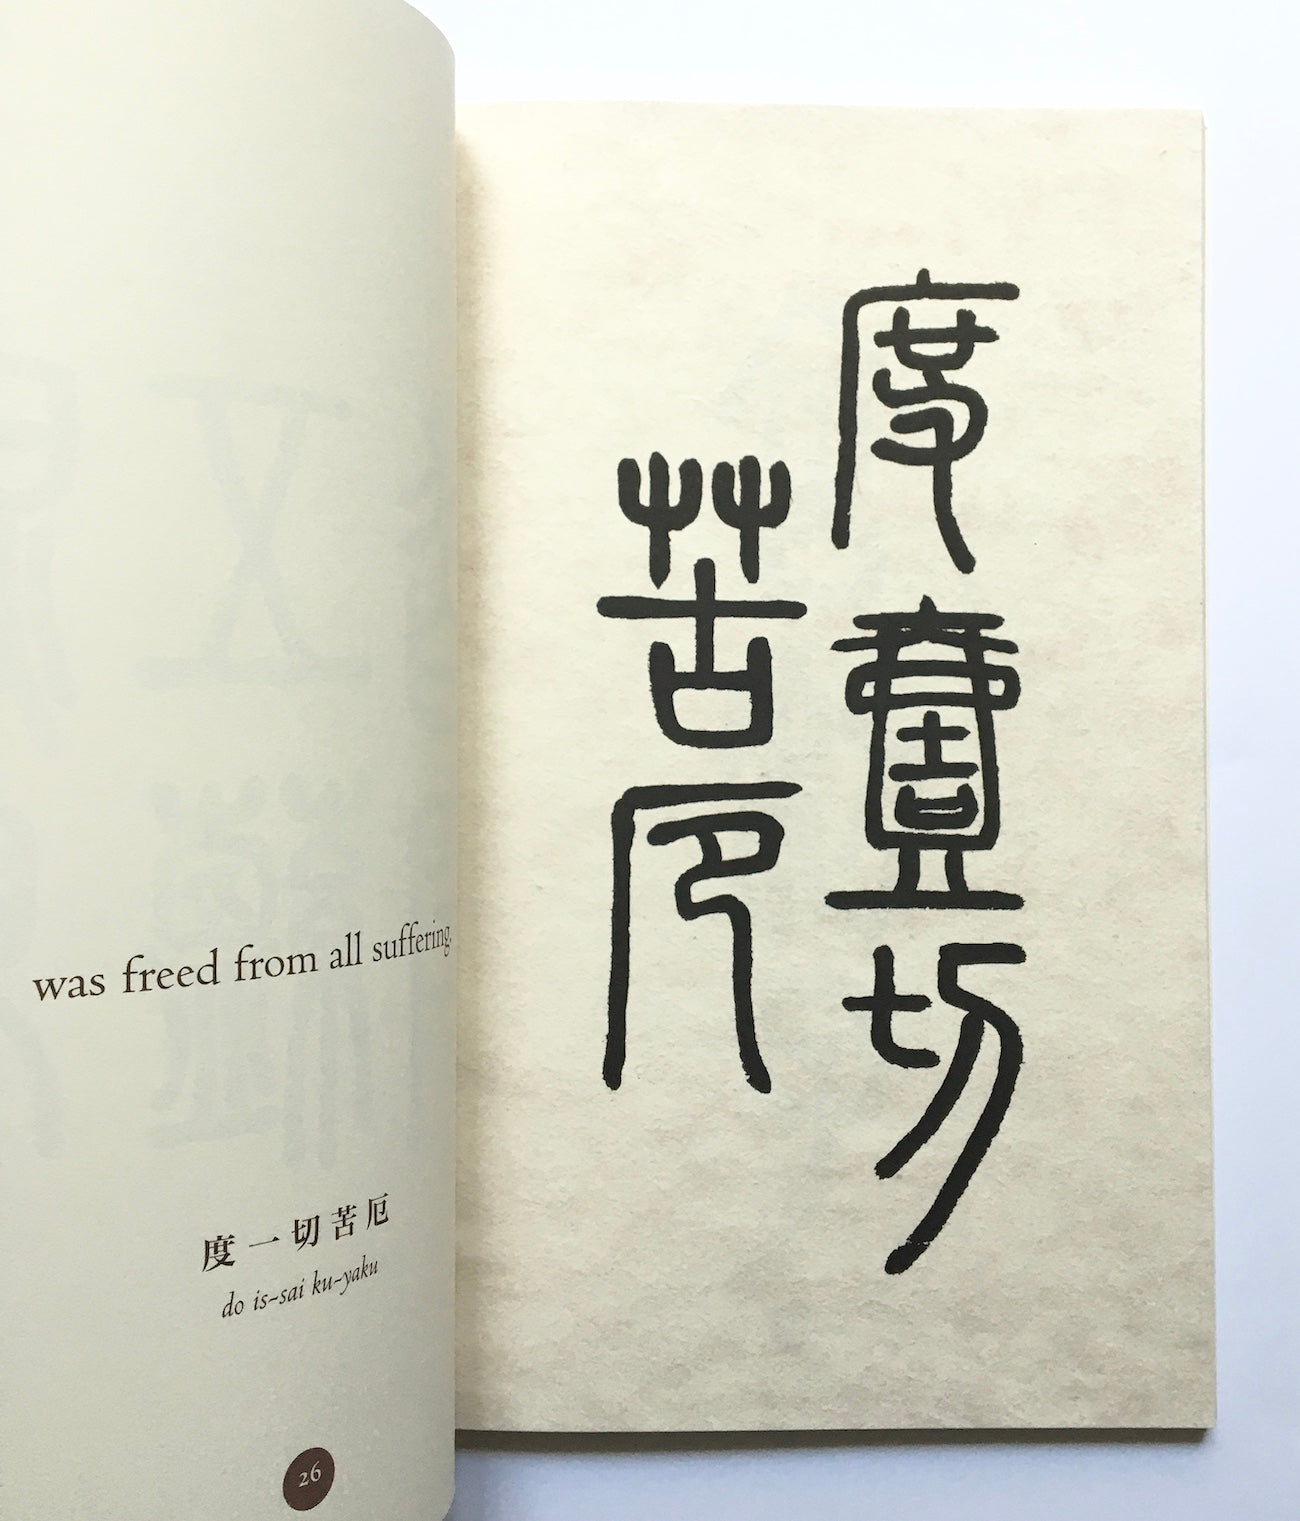 was freed from all suffering.
度一切苦厄
do is~sai ku~yaku
26
度壹切
苦厄